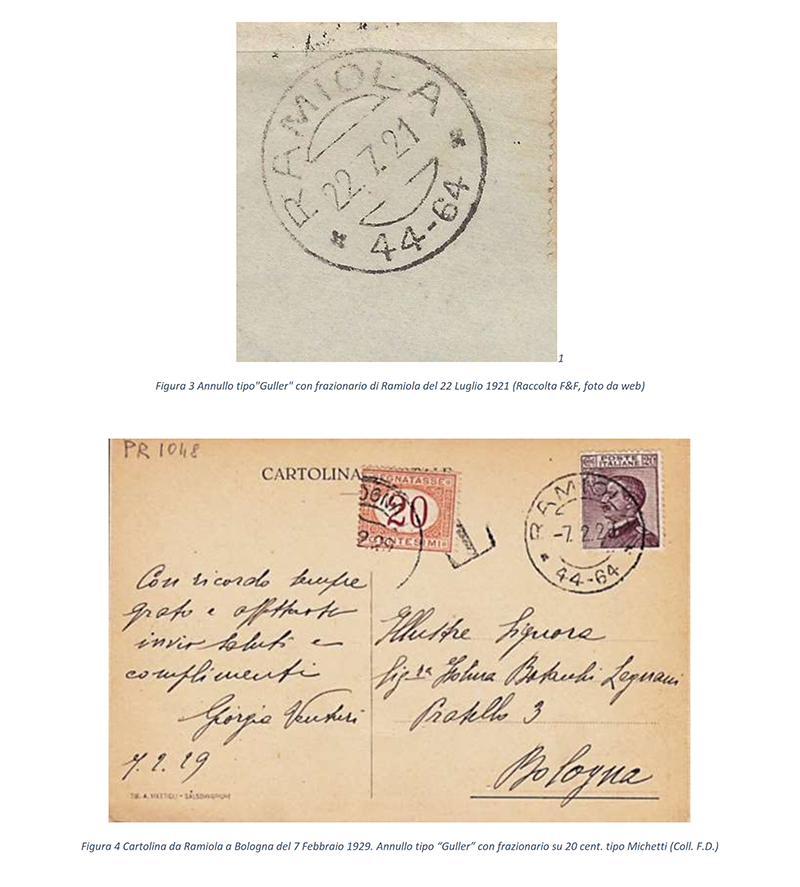 RAMIOLA
22.7.21
44-64
1
Figura 3 Annullo tipo"Guller" con frazionario di Ramiola del 22 Luglio 1921 (Raccolta F&F, foto da web)
PR 1048
CARTOLINA
POSTE
ITALIANE
SEGNATASSE
20
CENTESIMI
2.29
RAMIOLA
-7.2.29
44-64
Con ricordo sempre
grato e affettuoso
invio saluti e
complimenti
Giorgio Venturi
7.2.29
Illustre Signora
Sig.ra Legnani
Pratello 3
Bologna
TIP. A. MATTIOLI - SALSOMAGGIORE
Figura 4 Cartolina da Ramiola a Bologna del 7 Febbraio 1929. Annullo tipo “Guller” con frazionario su 20 cent. tipo Michetti (Coll. F.D.)